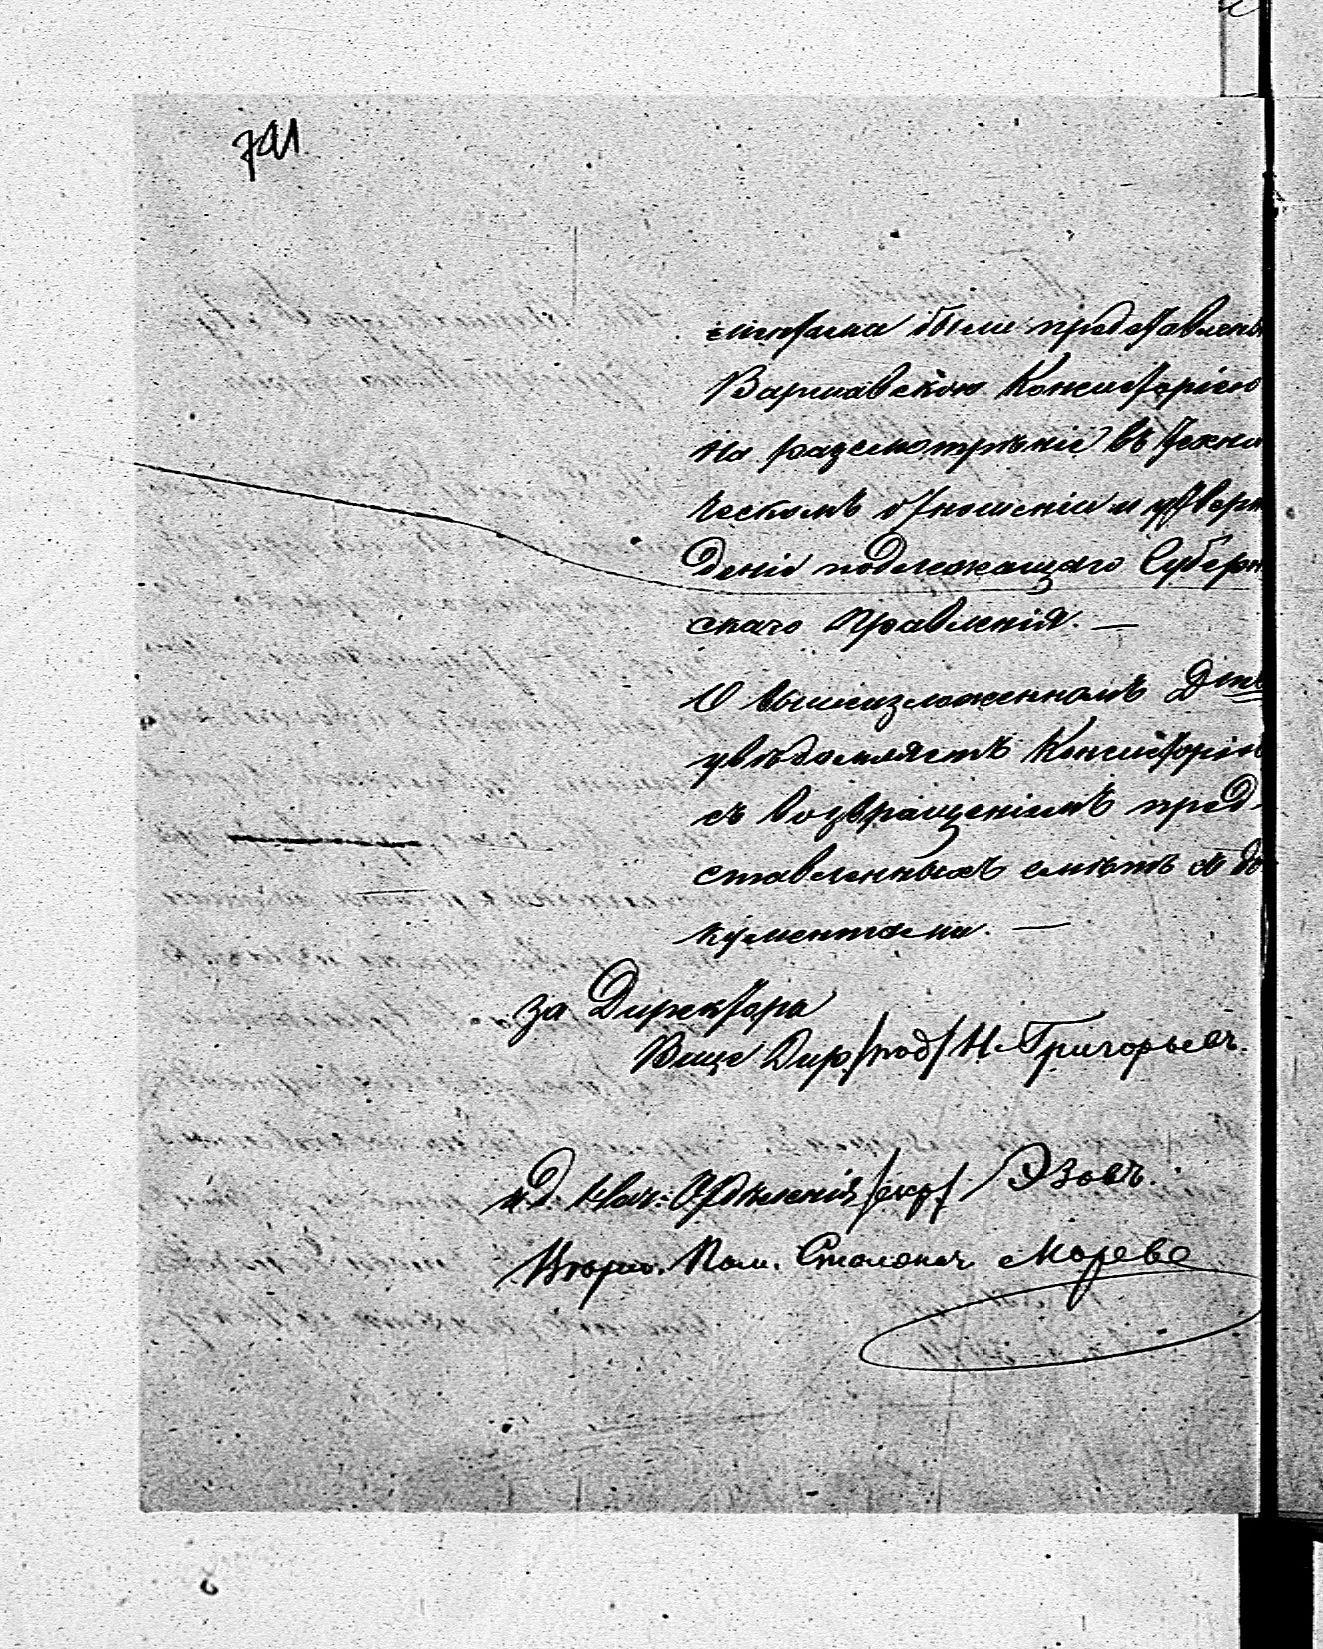 741
были представлены
Варшавскою Консисторіею
на разсмотрѣніе въ Техни
ческомъ отношеніи и утверж
деніе подлежащаго Губерн
скаго Правленія. —
О вышеизложенномъ
увѣдомляетъ Консисторію
съ возвращеніемъ пред-
ставленныхъ смѣтъ и до
кументами. —
за Директора
Вице Дир. /под/ Н. Григорьевъ.
и. д. Нач: Отдѣленія /скр/ Эзовъ.
Пом. Столонач